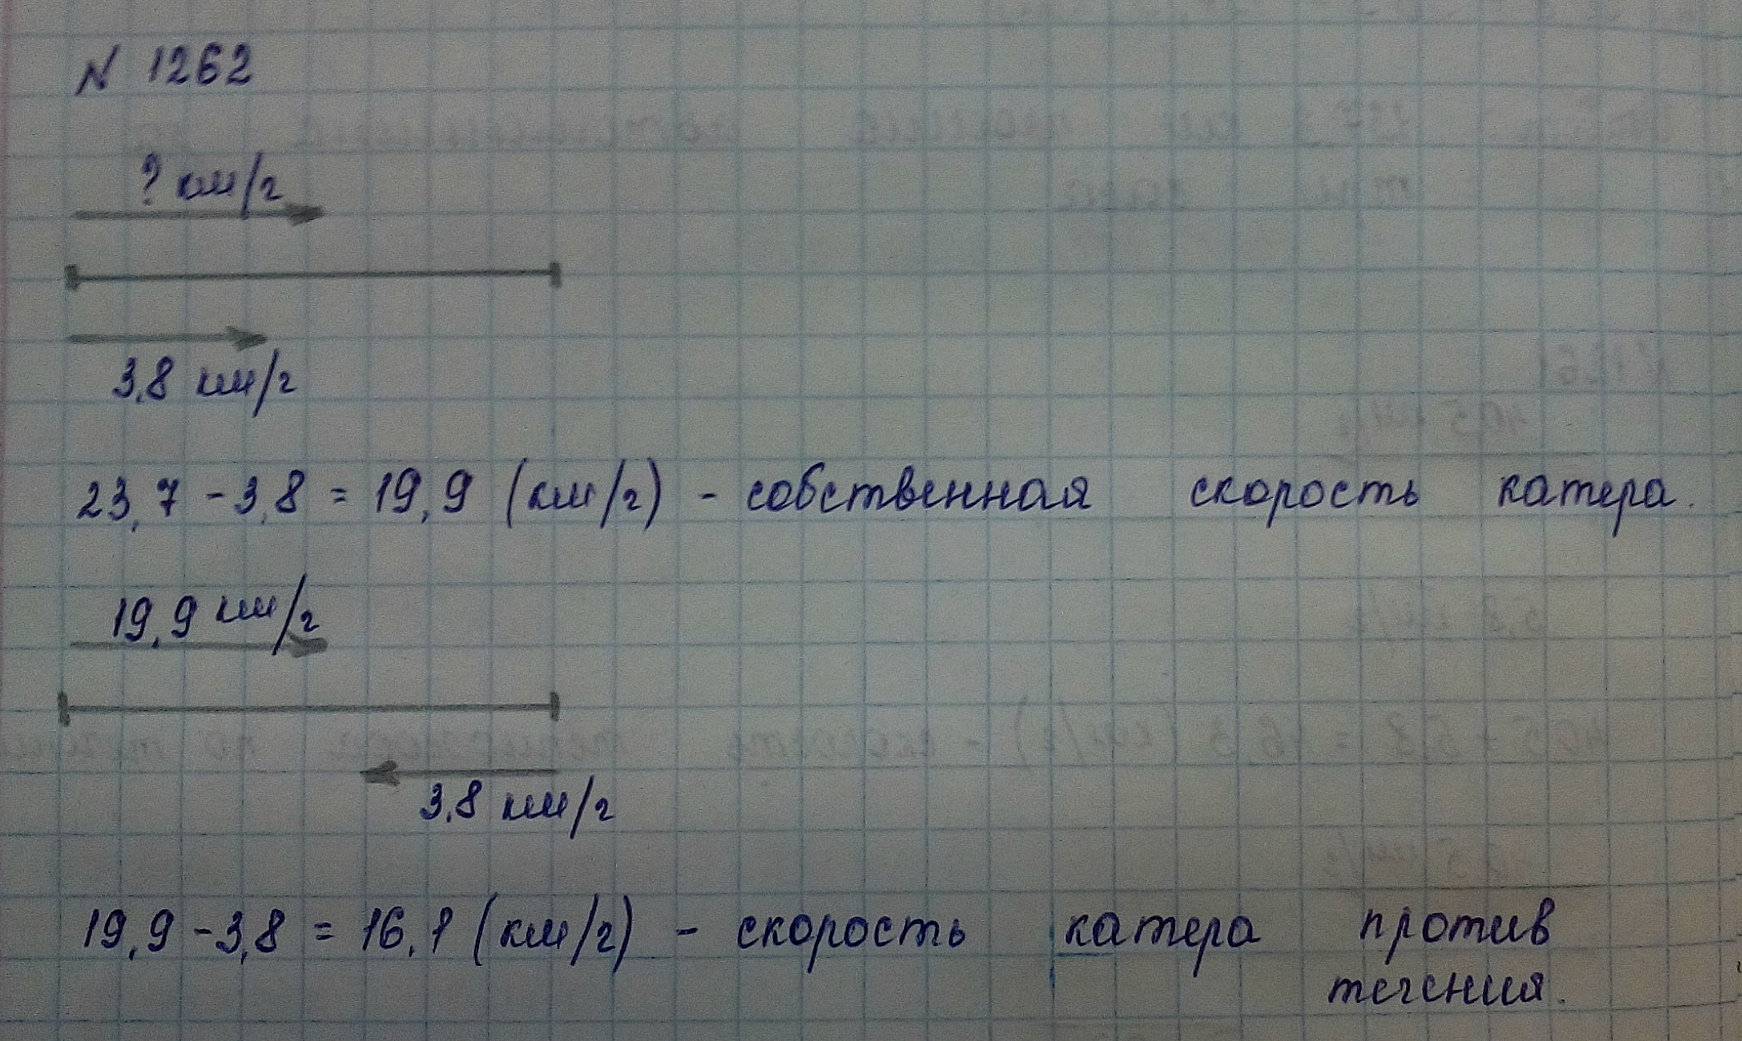 N 1262
? км/ч
3,8 км/ч
23,7 - 3,8 = 19,9 (км/ч) - собственная скорость катера.
19,9 км/ч
3,8 км/ч
19,9 - 3,8 = 16,1 (км/ч) - скорость катера против
течения.